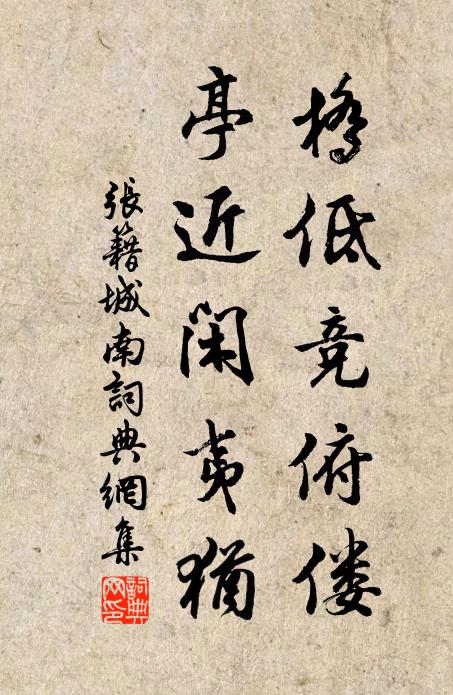 橋低竞俯偻
亭近闲夷猶
張籍城南詞典網集
詞典网印